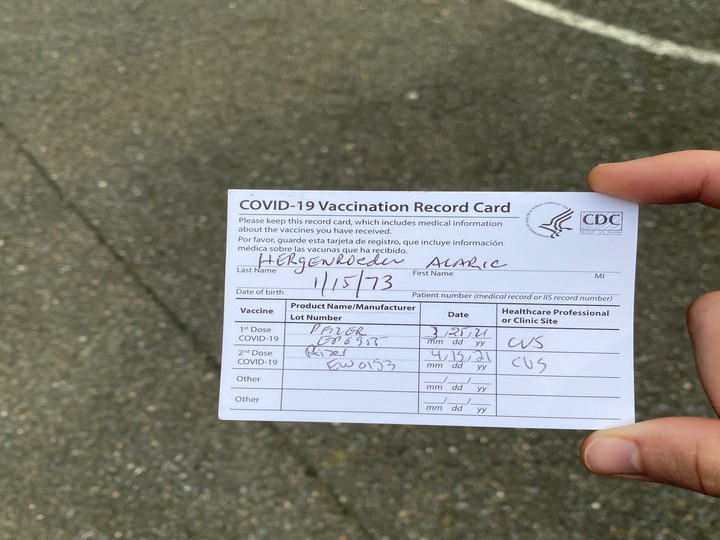 COVID-19 Vaccination Record Card
CDC
Please keep this record card, which includes medical information
about the vaccines you have received.
Por favor, guarde esta tarjeta de registro, que incluye información
médica sobre las vacunas que ha recibido.
HERgENROeder ALARIC
Last Name First Name MI
1/15/73
Date of birth Patient number (medical record or IIS record number)
Vaccine Product Name/Manufacturer Date Healthcare Professional
Lot Number or Clinic Site
1st Dose PFIZER 3/25/21 CVS
COVID-19 mm dd yy
2nd Dose Pfizer 4/15/21 CVS
COVID-19 EW0153 mm dd yy
Other / /
mm dd yy
Other / /
mm dd yy